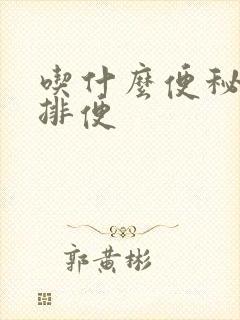 喫什麼便秘
排便
郭黄彬